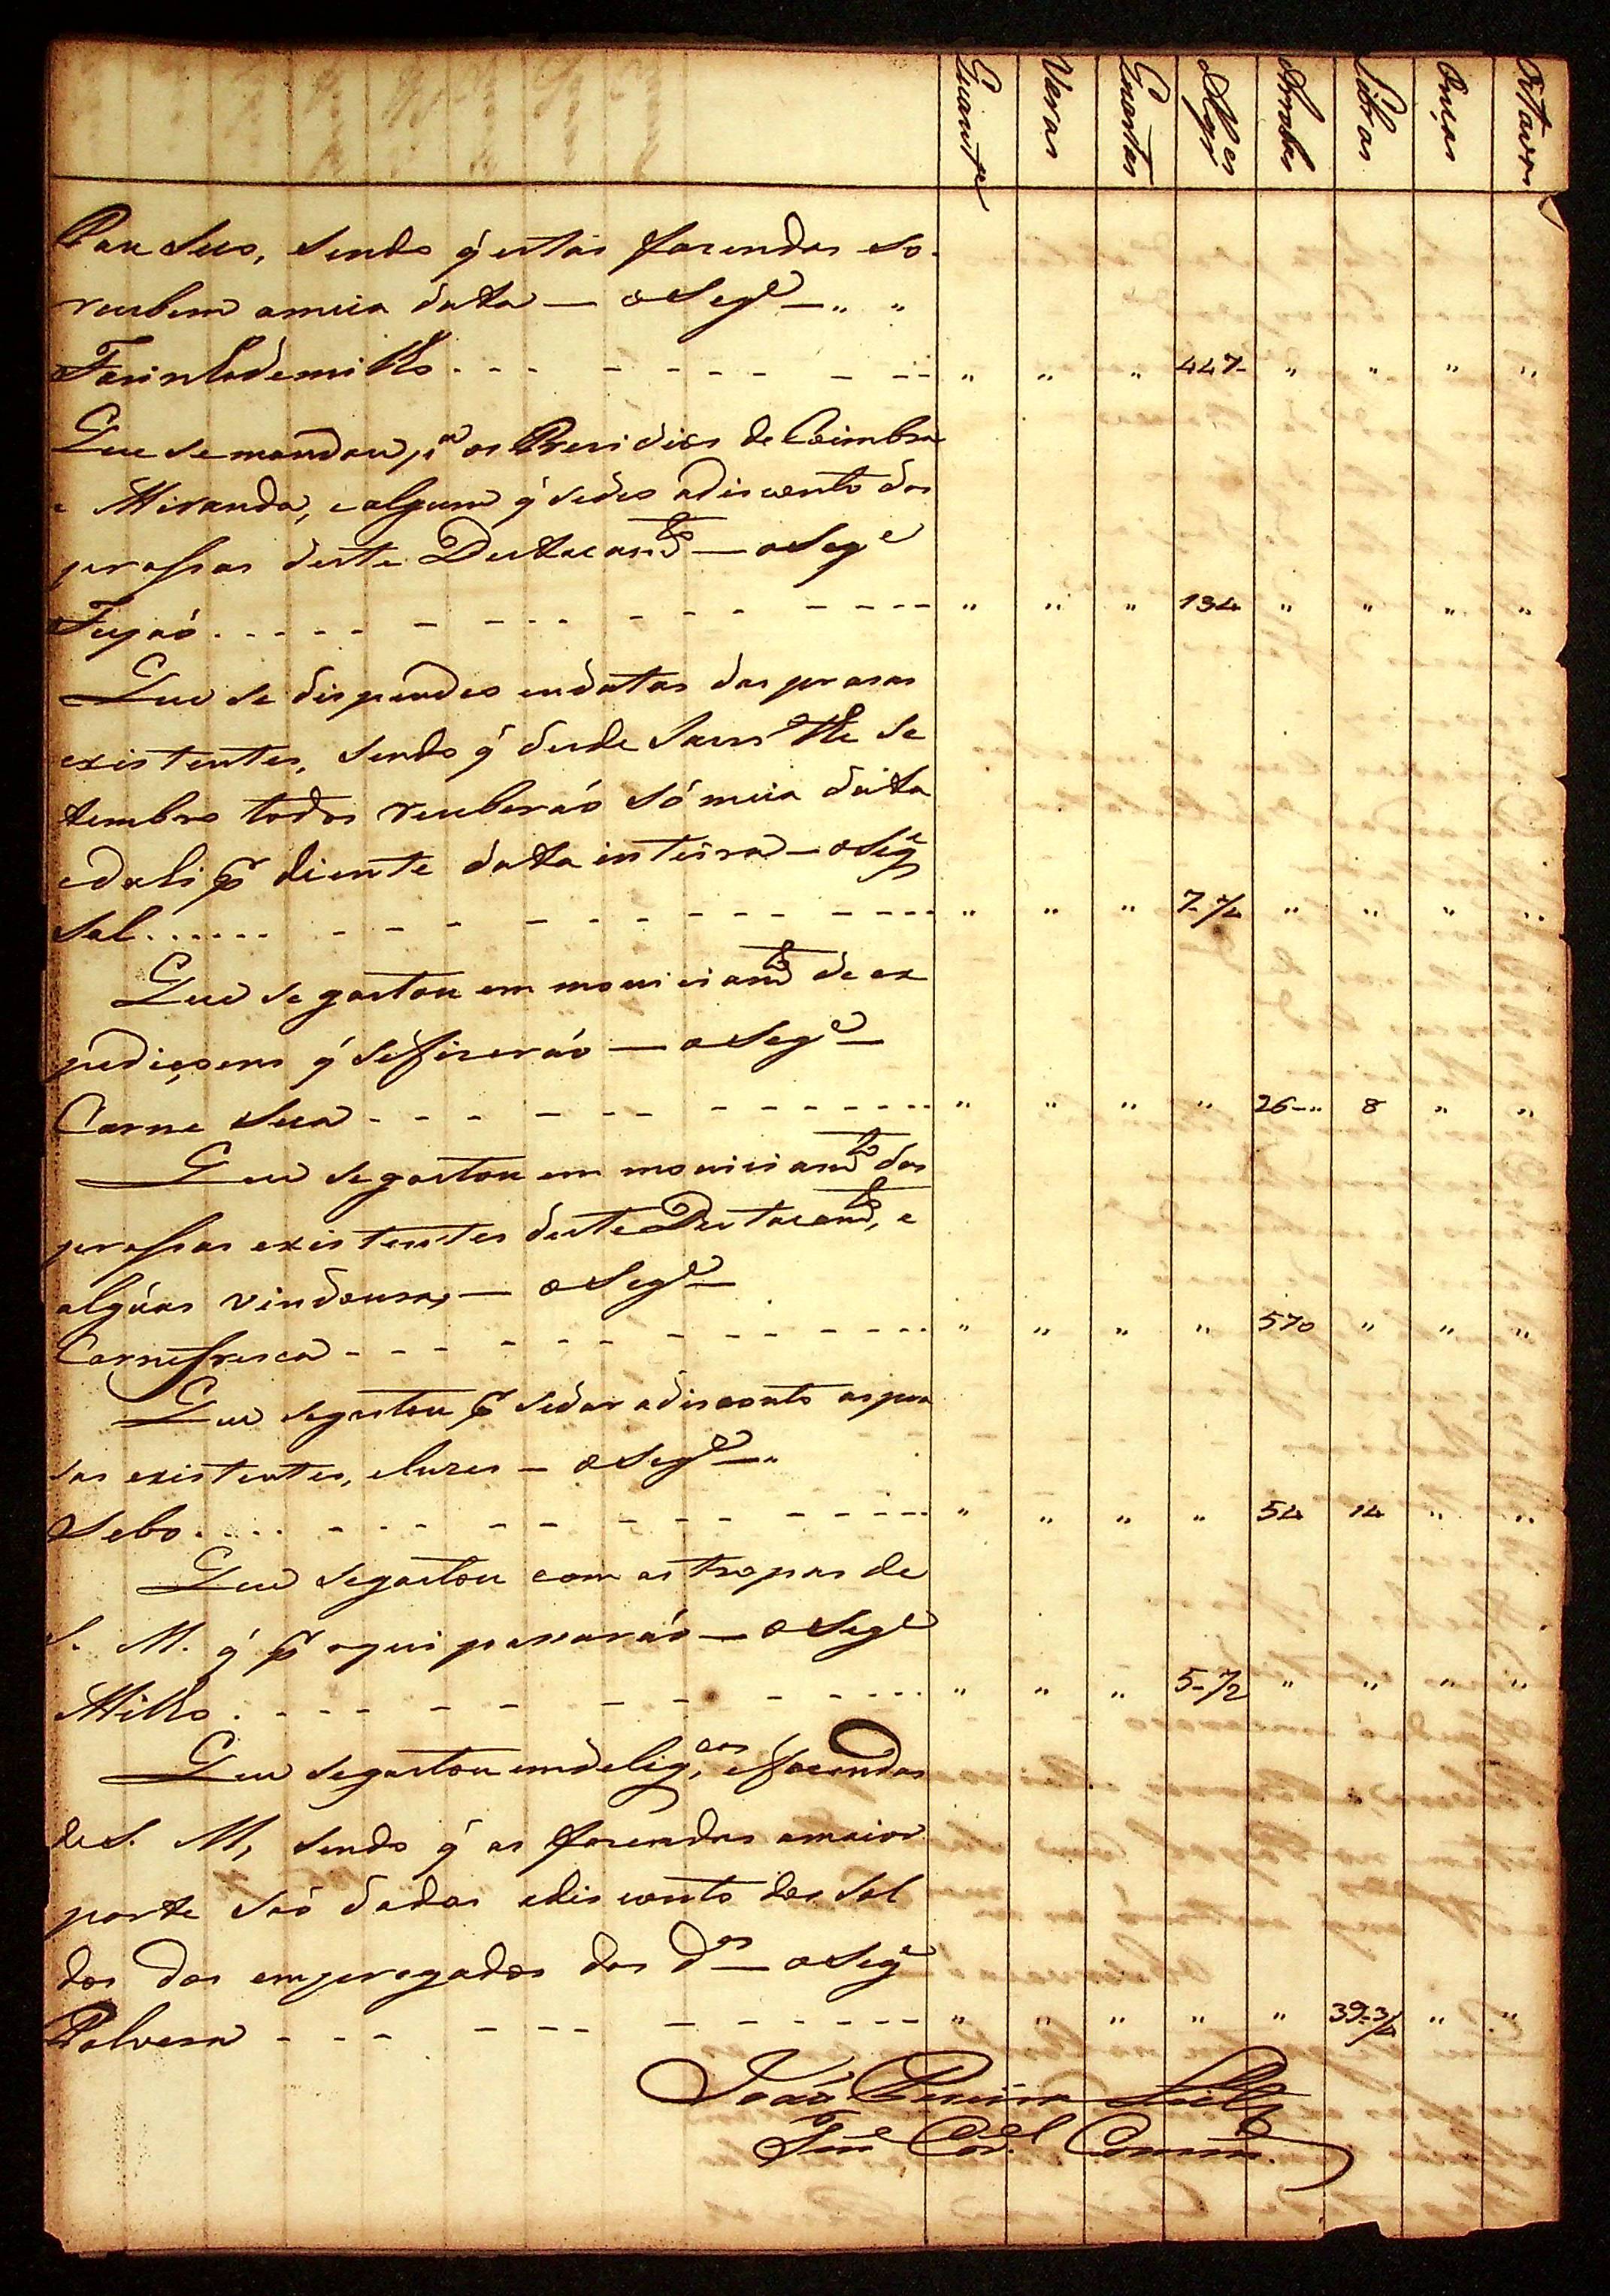 Quantid.e Varas Quartas Alqr.es Arrobas Libras Onças Oitavas
Pau Seco, sendo q' estas fazendas so
recebem a meia data — o Seg.e — " "
Farinha de milho - - - - - - " " " 447- " " " "
Que se mandou p.a os Presidios de Coimbra
e Miranda, e algum q' se deo a disconto das
prassas deste Destacam.to — o Seg.e
Feijaó - - - - - - " " " 134 " " " "
Que se dispendeo em datas das prasas
existentes, sendo q' desde
tembro todos receberaó só meia data
e dali p.r diente data inteira — o Seg.e
Sal - - - - - - " " " 7-¾ " " " "
Que se gastou em moniciam.to de ex
pediçoens q' se fizeraó — o Seg.e —
Carne Seca - - - - - - " " " " 26-" 8 " "
Que se gastou em moniciam.to das
prassas existentes deste Destacam.to, e
algúas vindouras, — o Seg.e —
Carne fresca - - - - - - " " " " 570 " " "
Que se gastou p.r se dar a disconto as pra
sas existentes, e luzes — o Seg.e — "
Sebo - - - - - - " " " " 54 14 " "
Que se gastou com as tropas de
S. M. q' p.r aqui passaraó — o Seg.e
Milho - - - - - - " " " 5-½ " " " "
Que se gastou em delig.cas, e fazendas
de S. M, sendo q' as fazendas a maior
parte saó dadas a disconto dos sol
dos dos empregados das d.as — o Seg.e
Polvora - - - - - - " " " " " 39-¾ " "
Joaó Pereira
Ten.e Cor.el Comm.e